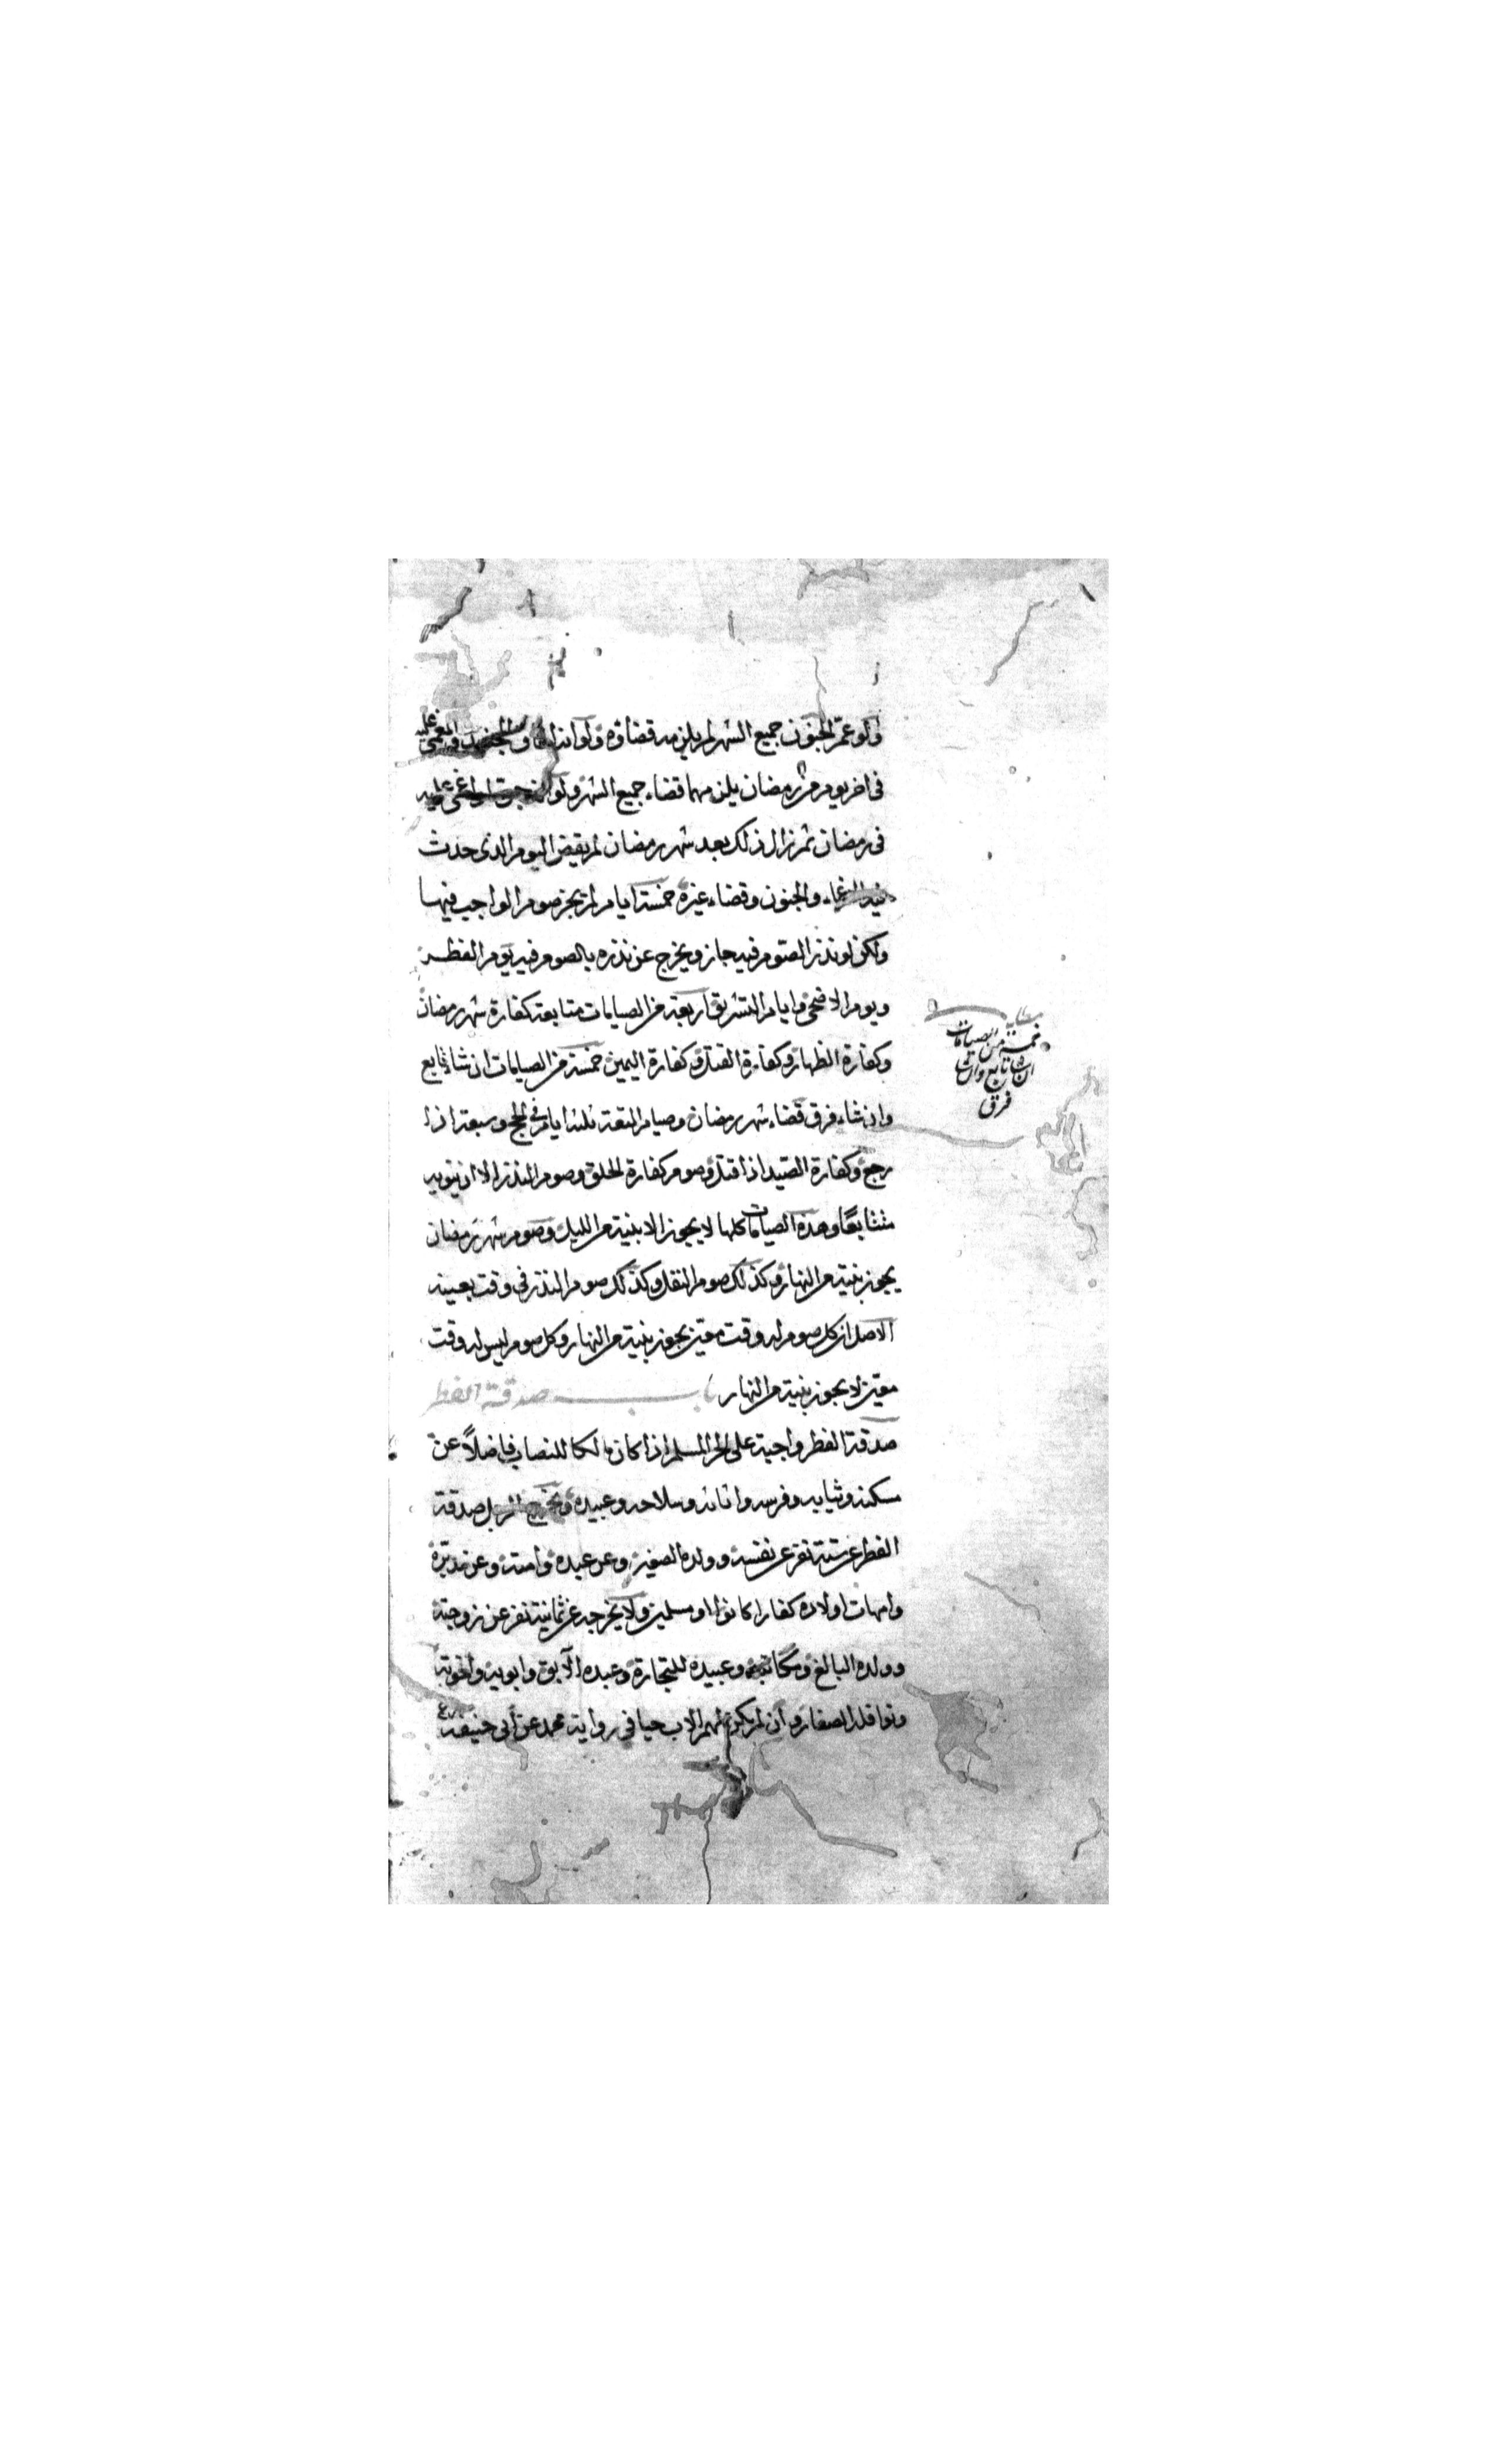 ولو عمّ الجنون جميع الشهر لم يلزمه قضاؤه ولو افاق المجنون والمغمى عليه
فى اخر يوم من رمضان يلزمهما قضاء جميع الشهر ولو اغمى عليه
فى رمضان ثم زال ذلك بعد شهر رمضان لم يقض اليوم الذى حدث
فيه الاغماء والجنون وقضاء غيره خمسة ايام لم يجز صوم الواجب فيها
ولكن لو نذر الصوم فيه جاز ويخرج عن نذره بالصوم فيه يوم الفطر
ويوم الاضحى وايام التشريق اربعة من الصيامات متتابعة كفارة شهر رمضان
وكفارة الظهار وكفارة القتل وكفارة اليمين خمسة من الصيامات ان شاء تابع
وان شاء فرق قضاء شهر رمضان وصيام المتعة ثلثة ايام فى الحج وسبعة اذا
رجع وكفارة الصيد اذا قتل وصوم كفارة الحلق وصوم النذر الا ان ينويه
متتابعًا وهذه الصيامات كلها لا يجوز الا بنية من الليل وصوم شهر رمضان
يجوز بنية من النهار وكذلك صوم النفل وكذلك صوم النذر فى وقت بعينه
الاصل ان كل صوم له وقت معين يجوز بنية من النهار وكل صوم ليس له وقت
معين لا يجوز بنية من النهار باب صدقة الفطر
صدقة الفطر واجبة على الحر المسلم اذا كان مالكا للنصاب فاضلاً عن
مسكنه وثيابه وفرسه واثاثه وسلاحه وعبيده ويخرج الرجل صدقة
الفطر عن ستة نفر عن نفسه وولده الصغير وعن عبده وامته وعن مدبره
وامهات اولاده كفارا كانوا او مسلمين ولا يخرجه عن ثمانية نفر عن زوجته
وولده البالغ ومكاتبه وعبيده للتجارة وعبده الآبق وابويه واخوته
ونوافله الصغار وان لم يكن لهم الاب حيا فى رواية محمد عن أبى حنيفة
خمسة من الصيامات
ان شاء تابع وان شاء
فرق